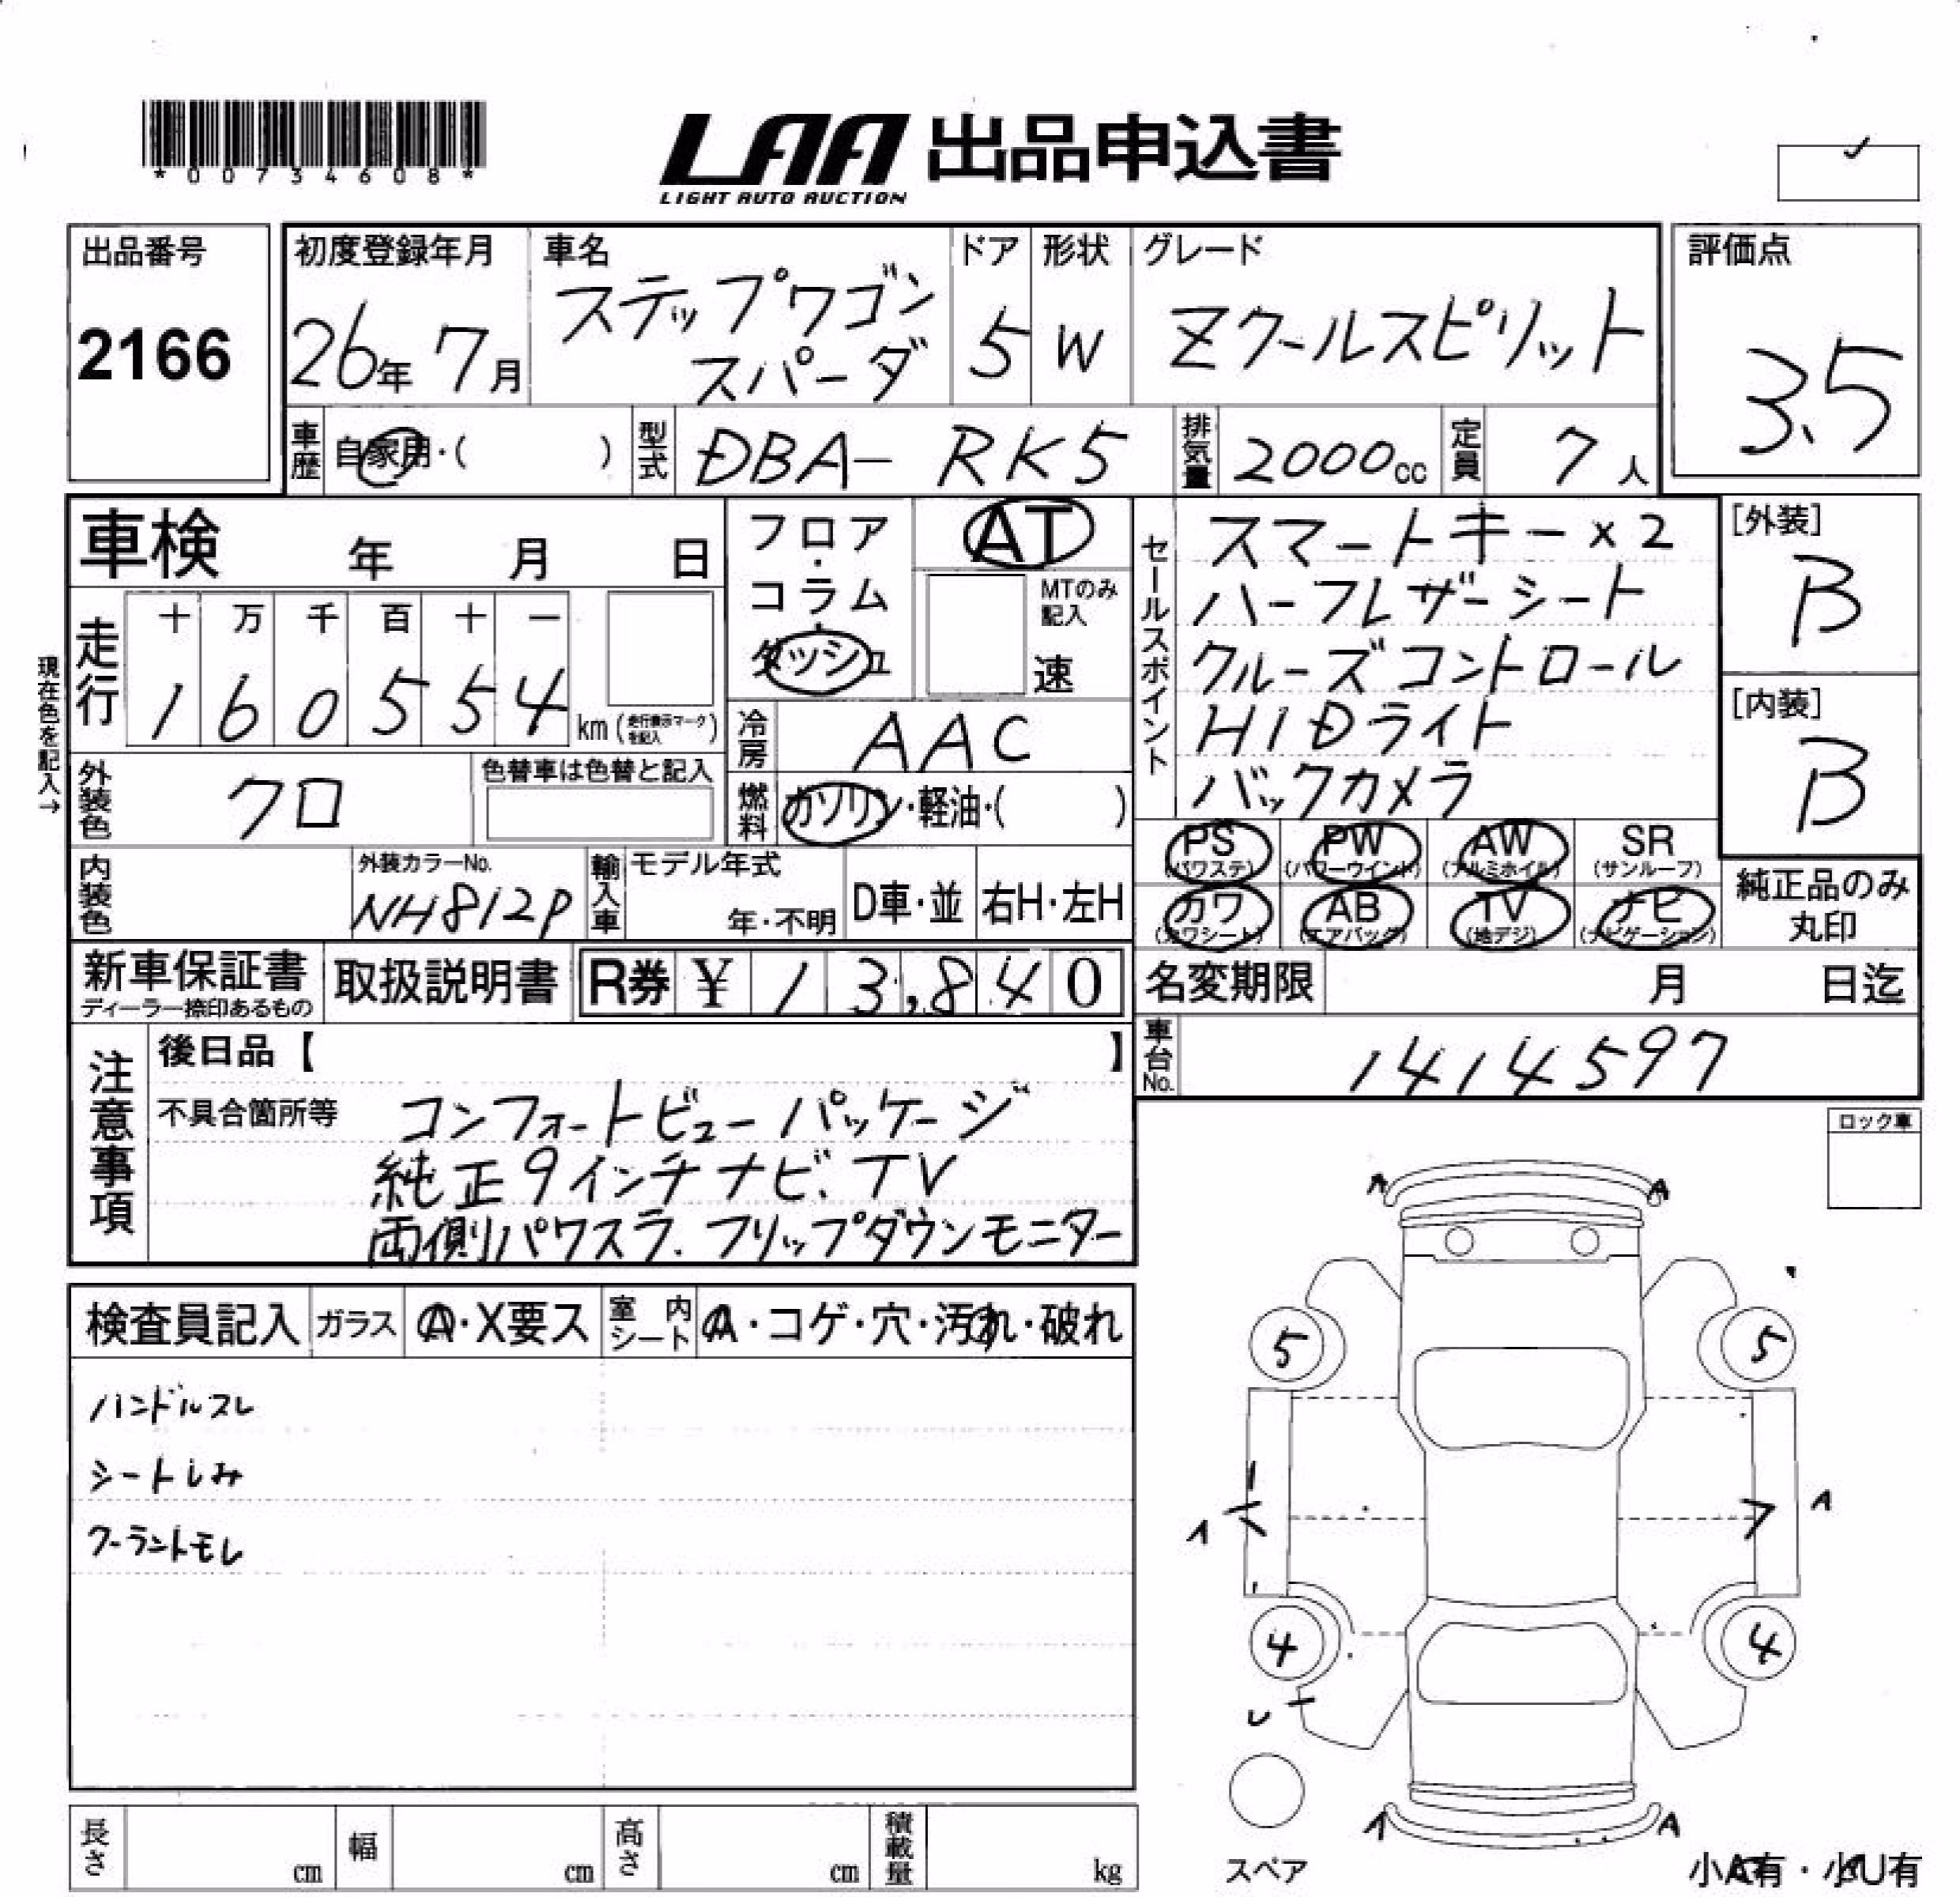 *00734608*
LAA 出品申込書
LIGHT AUTO AUCTION
出品番号
2166
初度登録年月
26年 7月
車名
ステップワゴン
スパーダ
ドア
5
形状
W
グレード
Zクールスピリット
評価点
3.5
車歴 自家用・( )
型式 DBA- RK5
排気量 2000cc
定員 7人
車検 年 月 日
フロア・コラム・ダッシュ
AT
MTのみ記入
速
セールスポイント
スマートキー×2
ハーフレザーシート
クルーズコントロール
HIDライト
バックカメラ
[外装]
B
[内装]
B
現在色を記入→
走行
十 万 千 百 十 一
1 6 0 5 5 4 km (走行表示マークを記入)
冷房 AAC
外装色 クロ
色替車は色替と記入
燃料 ガソリン・軽油・( )
PS (パワステ)
PW (パワーウインド)
AW (アルミホイル)
SR (サンルーフ)
カワ (カワシート)
AB (エアバッグ)
TV (地デジ)
ナビ (ナビゲーション)
純正品のみ
丸印
内装色
外装カラーNo.
NH812P
輸入車
モデル年式
年・不明
D車・並
右H・左H
新車保証書
ディーラー捺印あるもの
取扱説明書
R券 ¥ 13,840
名変期限 月 日迄
車台No. 1414597
注意事項
後日品【 】
不具合箇所等
コンフォートビューパッケージ
純正9インチナビ、TV
両側パワスラ、フリップダウンモニター
ロック車
検査員記入
ガラス A・X要ス
室内シート A・コゲ・穴・汚れ・破れ
ハンドルスレ
シートしみ
クーラントモレ
A A
5 5
A A
4 4
U
A A
スペア
小A有・小U有
長さ cm
幅 cm
高さ cm
積載量 kg